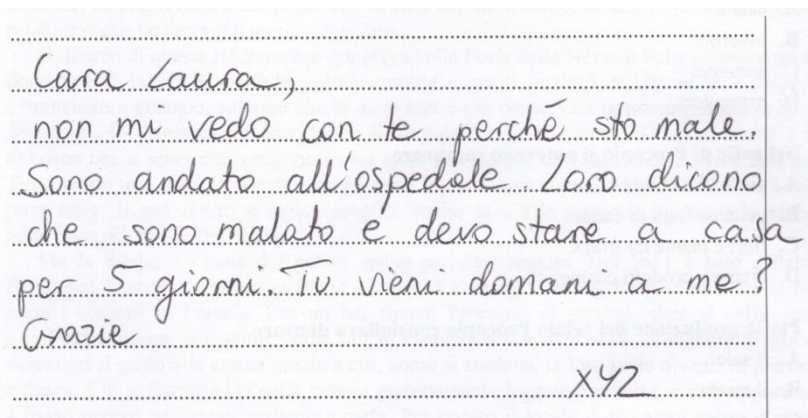 Cara Laura,
non mi vedo con te, perché sto male.
Sono andato all'ospedale. Loro dicono
che sono malato e devo stare a casa
per 5 giorni. Tu vieni domani a me?
Grazie
XYZ